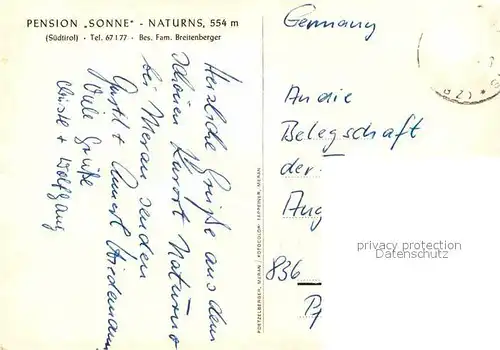 PENSION „SONNE" - NATURNS, 554 m
(Südtirol) · Tel. 67177 · Bes. Fam. Breitenberger
Herzliche Grüße aus dem
schönen Kurort Naturns
bei Meran senden
Gustl + Annerl
Viele Grüße
Christl + Wolfgang
FOTOCOLOR
MERAN
Germany
An die
Belegschaft
der
Aug
836
privacy protection
Datenschutz